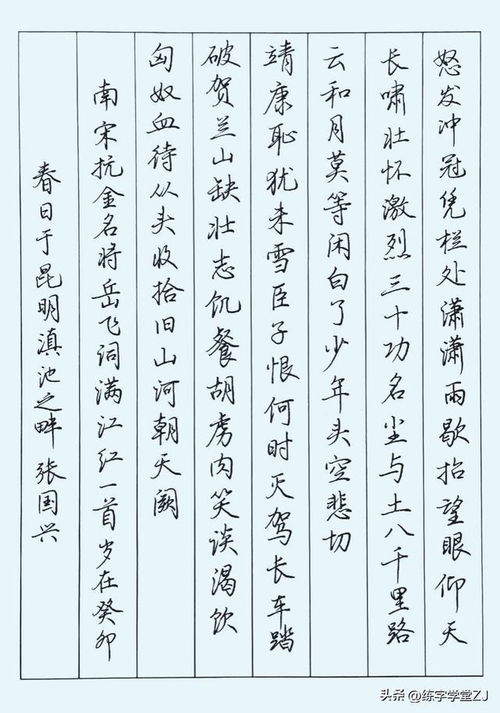 怒发冲冠凭栏处潇潇雨歇抬望眼仰天
长啸壮怀激烈三十功名尘与土八千里路
云和月莫等闲白了少年头空悲切
靖康耻犹未雪臣子恨何时灭驾长车踏
破贺兰山缺壮志饥餐胡虏肉笑谈渴饮
匈奴血待从头收拾旧山河朝天阙
南宋抗金名将岳飞词满江红一首岁在癸卯
春日于昆明滇池之畔张国兴
头条@练字学堂ZJ